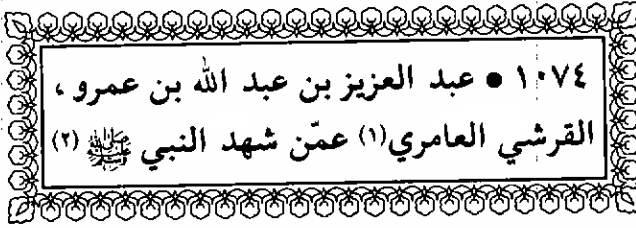 ١٠٧٤ ● عبد العزيز بن عبد الله بن عمرو ،
القرشي العامري(١) عمّن شهد النبي ﷺ (٢)